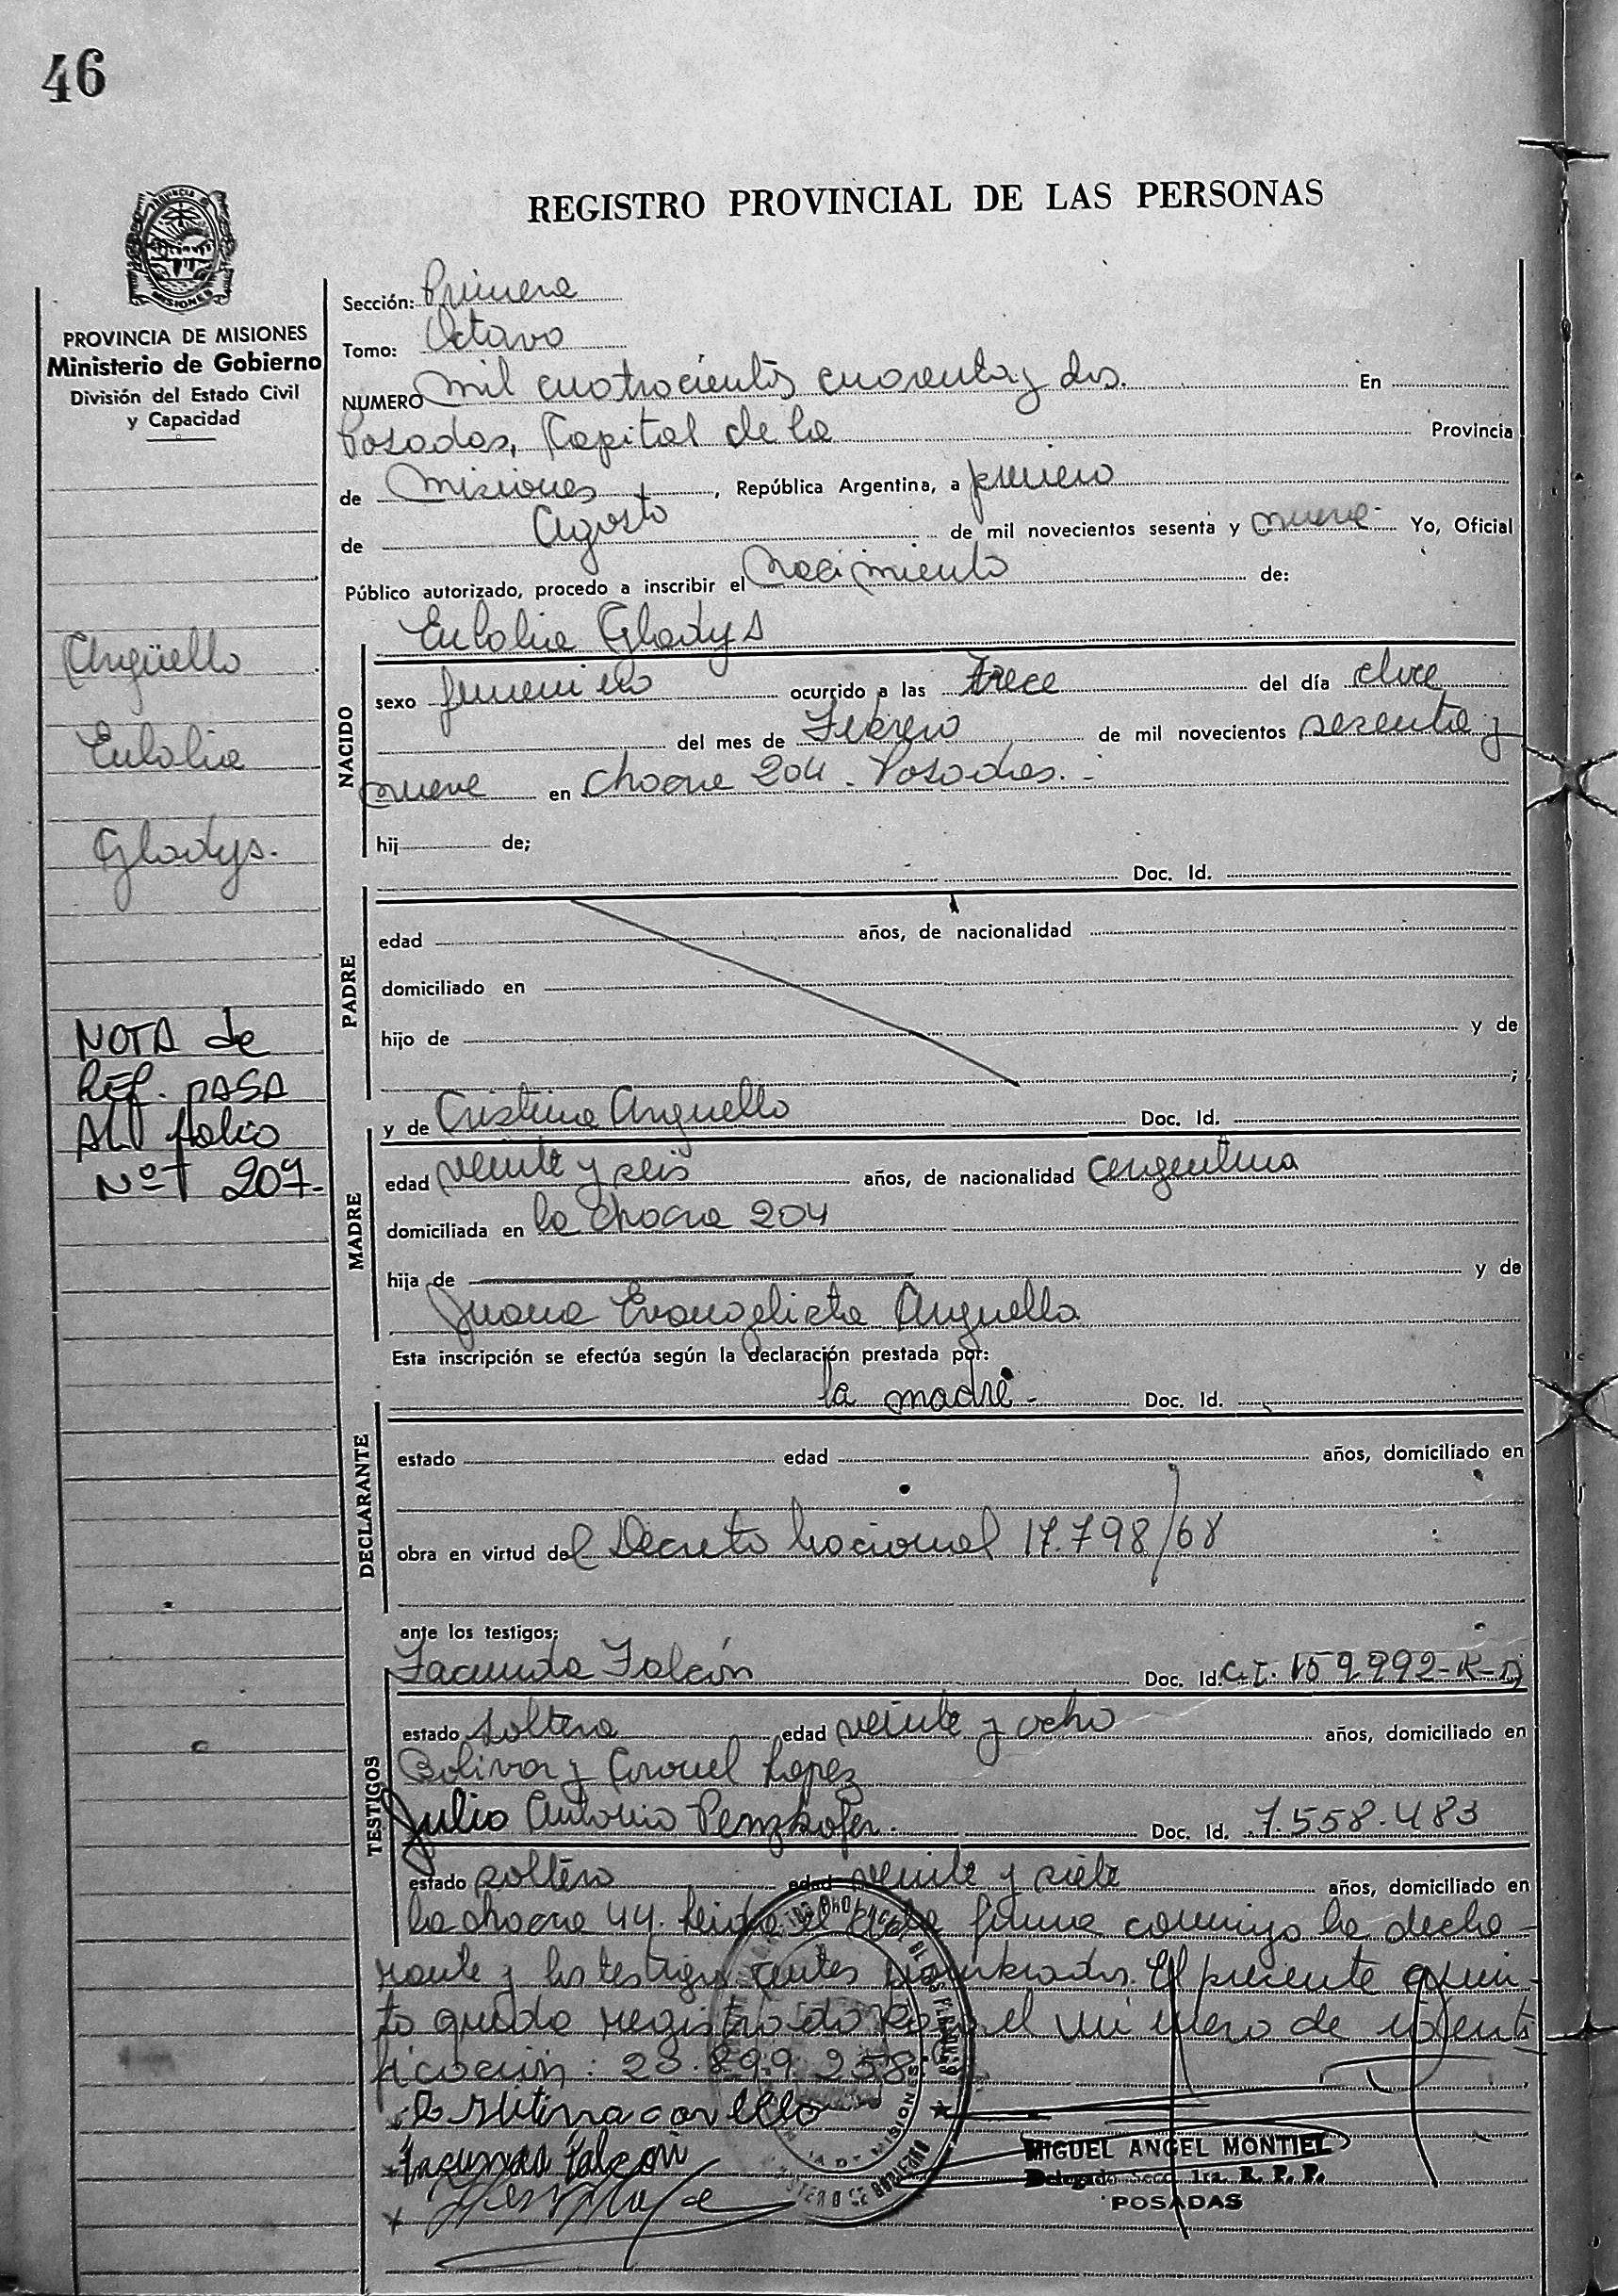 46
REGISTRO PROVINCIAL DE LAS PERSONAS
PROVINCIA DE MISIONES
Ministerio de Gobierno
División del Estado Civil
y Capacidad
Argüello
Eulalia
Gladys.
NOTA de
REF. PASA
AL folio
Nº 207.-
Sección: Primera
Tomo: Octavo
NUMERO mil cuatrocientos cuarenta y dos. En
Posadas, Capital de la Provincia
de Misiones, República Argentina, a primero
de Agosto de mil novecientos sesenta y nueve- Yo, Oficial
Público autorizado, procedo a inscribir el Nacimiento de:
Eulalia Gladys
NACIDO
sexo femenino ocurrido a las trece del día doce
del mes de Febrero de mil novecientos sesenta y
nueve en chacra 204. Posadas.-
hij de;
Doc. Id.
PADRE
edad años, de nacionalidad
domiciliado en
hijo de y de
;
y de Cristina Arguello Doc. Id.
MADRE
edad veinte y seis años, de nacionalidad argentina
domiciliada en la chacra 204
hija de y de
Juana Evangelista Arguello
Esta inscripción se efectúa según la declaración prestada por:
la madre- Doc. Id.
DECLARANTE
estado edad años, domiciliado en
obra en virtud del Decreto Nacional 17.798/68
ante los testigos:
Facunda Falcón Doc. Id. C.I. 159.992-R-D
TESTIGOS
estado soltera edad veinte y ocho años, domiciliado en
Bolivar y Coronel Lopez
Julio Antonio Penzkofer. Doc. Id. 7.558.483
estado soltero edad veinte y siete años, domiciliado en
la chacra 44. Leída el acta firma conmigo la decla-
rante y los testigos antes nombrados. El presente asien-
to queda registrado bajo el número de identi
ficación: 23.899.258.
Facunda Falcon
MIGUEL ANGEL MONTIEL
Delegado Secc. 1ra. R. P. P.
POSADAS